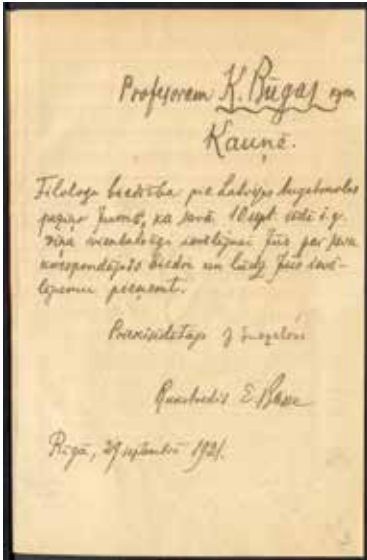 Profesoram K. Būgas kgm.
Kauņā.
Filologu biedrība pie Latvijas Augstskolas
paziņo Jums, ka savā 10 sept. sēdē š. g.
viņa vienbalsīgi ievēlējusi Jūs par savu
korespondējošo biedri un lūdz Jūs ievē-
lējumu pieņemt.
Priekšsēdētājs J.
Rakstvedis E.
Rīgā, 29 septembrī 1921.